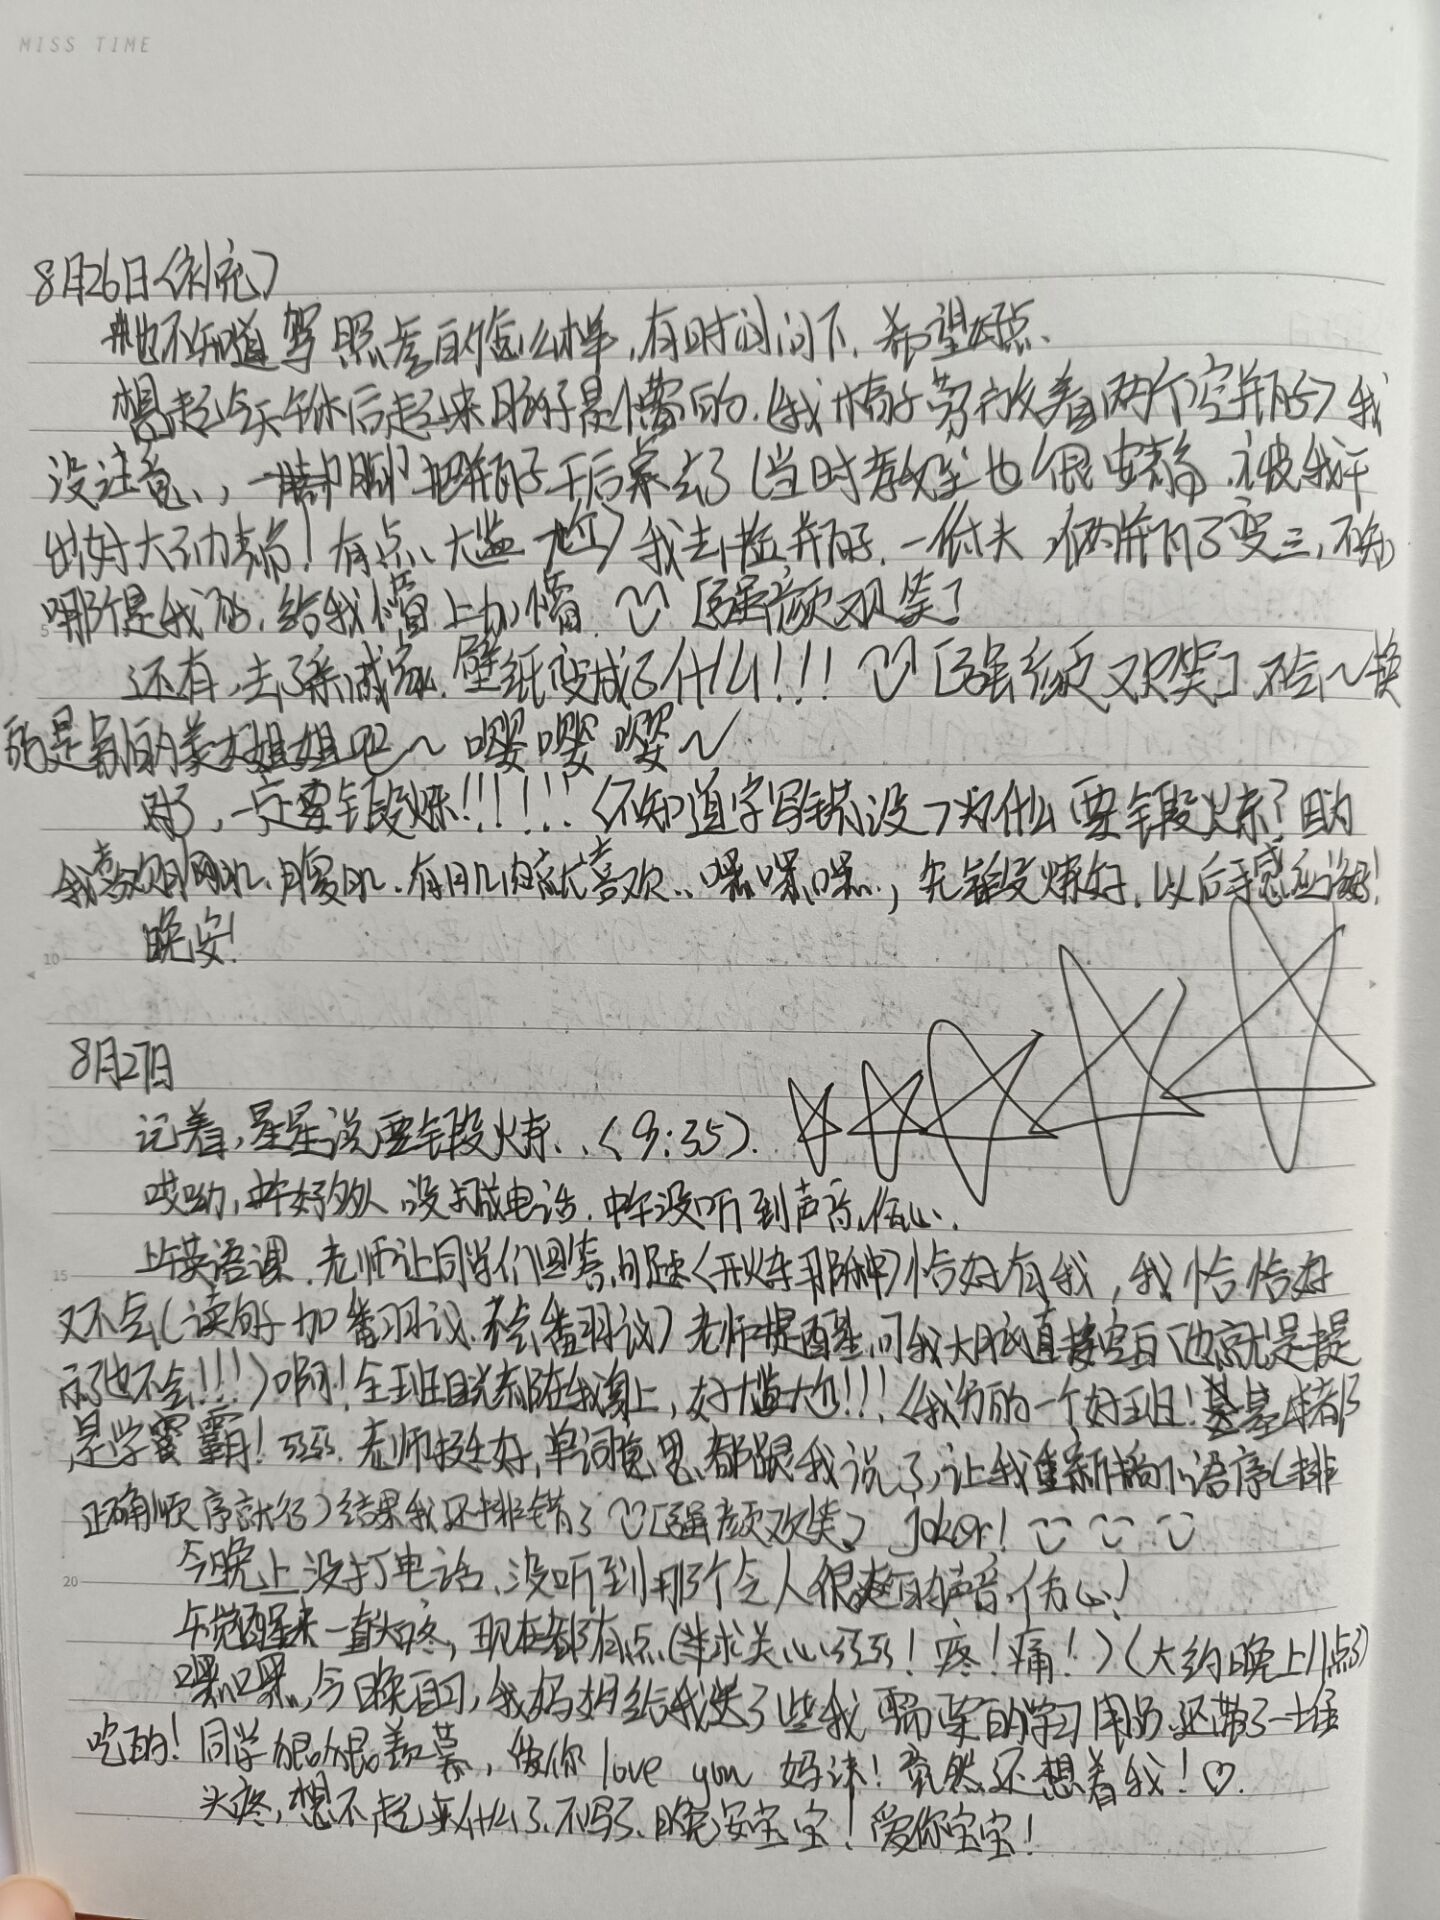 MISS TIME
8月26日(补充)
也不知道驾照考的怎么样,有时间问下,希望好点、
想起今天午休后起来脑子是懵的.(我椅子旁放着两个空瓶子)我
没注意,一脚把瓶子干后家去了(当时教室也很安静,被我干
出好大动静!有点尴尬)我去捡瓶子,一低头,俩瓶子变三,不知
哪个是我的,给我懵上加懵.[强颜欢笑]
还有,去了亲戚家,壁纸变成了什么!!![强颜欢笑]不会~换
成是别的美女姐姐吧~嘤嘤嘤~
对了,一定要锻炼!!!!!!(不知道字写错没)为什么要锻炼?因为
我喜欢胸肌、腹肌、有肌肉就喜欢..嘿嘿嘿..,先锻炼好,以后手感应该好!
晚安!
10
8月27日
记着,星星说要锻炼..(9:35).
哎呦,中午好多人,没打成电话.中午没听到声音,伤心.
15
上午英语课,老师让同学们回答问题(开火车那种)恰好有我,我恰恰好
又不会(读句子加翻译,不会翻译)老师提醒,可我大脑直接空白(也就是提
示了也不会!!!)啊!全班目光都在我身上,好尴尬!!!(我分的一个好班!基本都
是学霸!呜呜.老师挺好,单词意思都跟我说了,让我重新搞下语序(排
正确顺序就行)结果我还排错了[强颜欢笑] Joker!
20
今晚上没打电话,没听到那个令人很爽的声音,伤心!
午觉醒来一直头疼,现在都有点(求求关心呜呜!疼!痛!)(大约晚上11点了)
嘿嘿,今晚自习,我妈妈给我送了些我需要的学习用品,还带了一堆
吃的!同学狠狠羡慕,爱你 love you 妈咪!竟然还想着我!♡.
头疼,想不起来什么了、不写了、晚安宝宝!爱你宝宝!